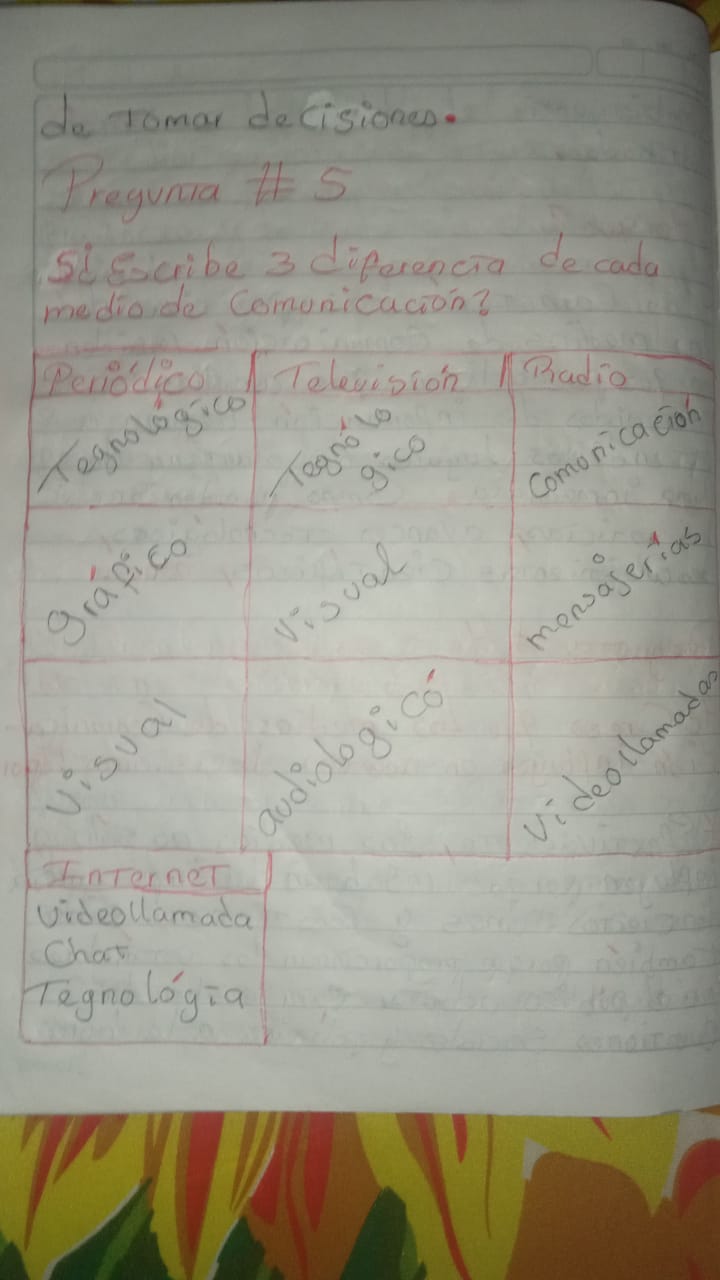 de tomar decisiones.
Pregunta # 5
5¿ Escribe 3 diferencia de cada
medio de Comunicación?
Periódico Televisión Radio
Tegnológico Tegnólo
gico Comunicación
gráfico Visual mensajerías
Visual audiologicó Videollamadas
Internet
Videollamada
Chat
Tegnológia